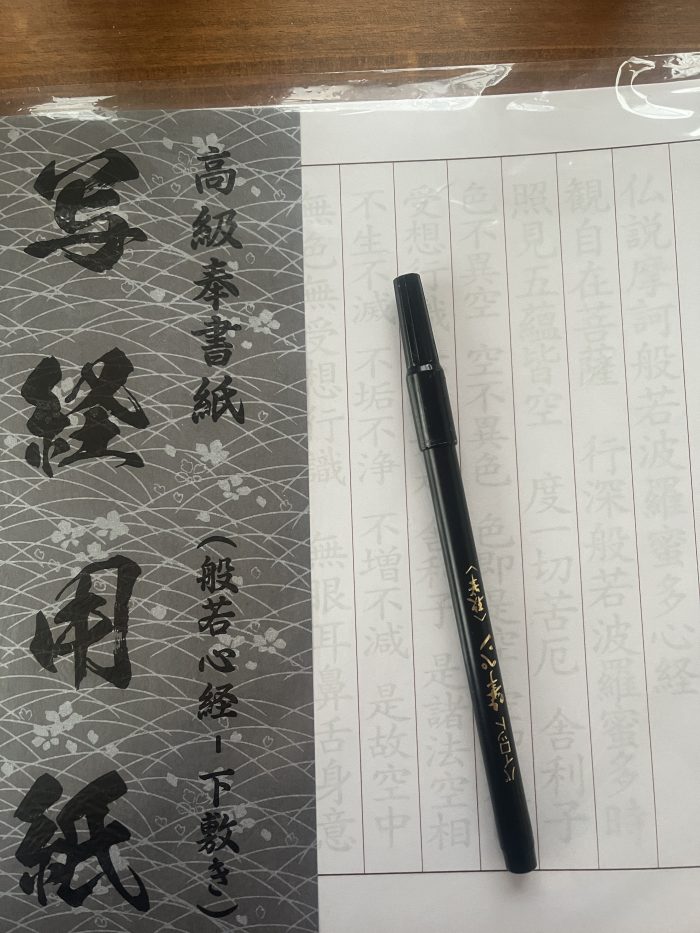 仏説摩訶般若波羅蜜多心経
観自在菩薩 行深般若波羅蜜多時
照見五蘊皆空 度一切苦厄 舎利子
色不異空 空不異色 色即是空
受想行識 舎利子 是諸法空相
不生不滅 不垢不浄 不増不減 是故空中
無色無受想行識 無眼耳鼻舌身意
パイロット 筆ペン 〈軟筆〉
高級奉書紙 (般若心経-下敷き)
写経用紙